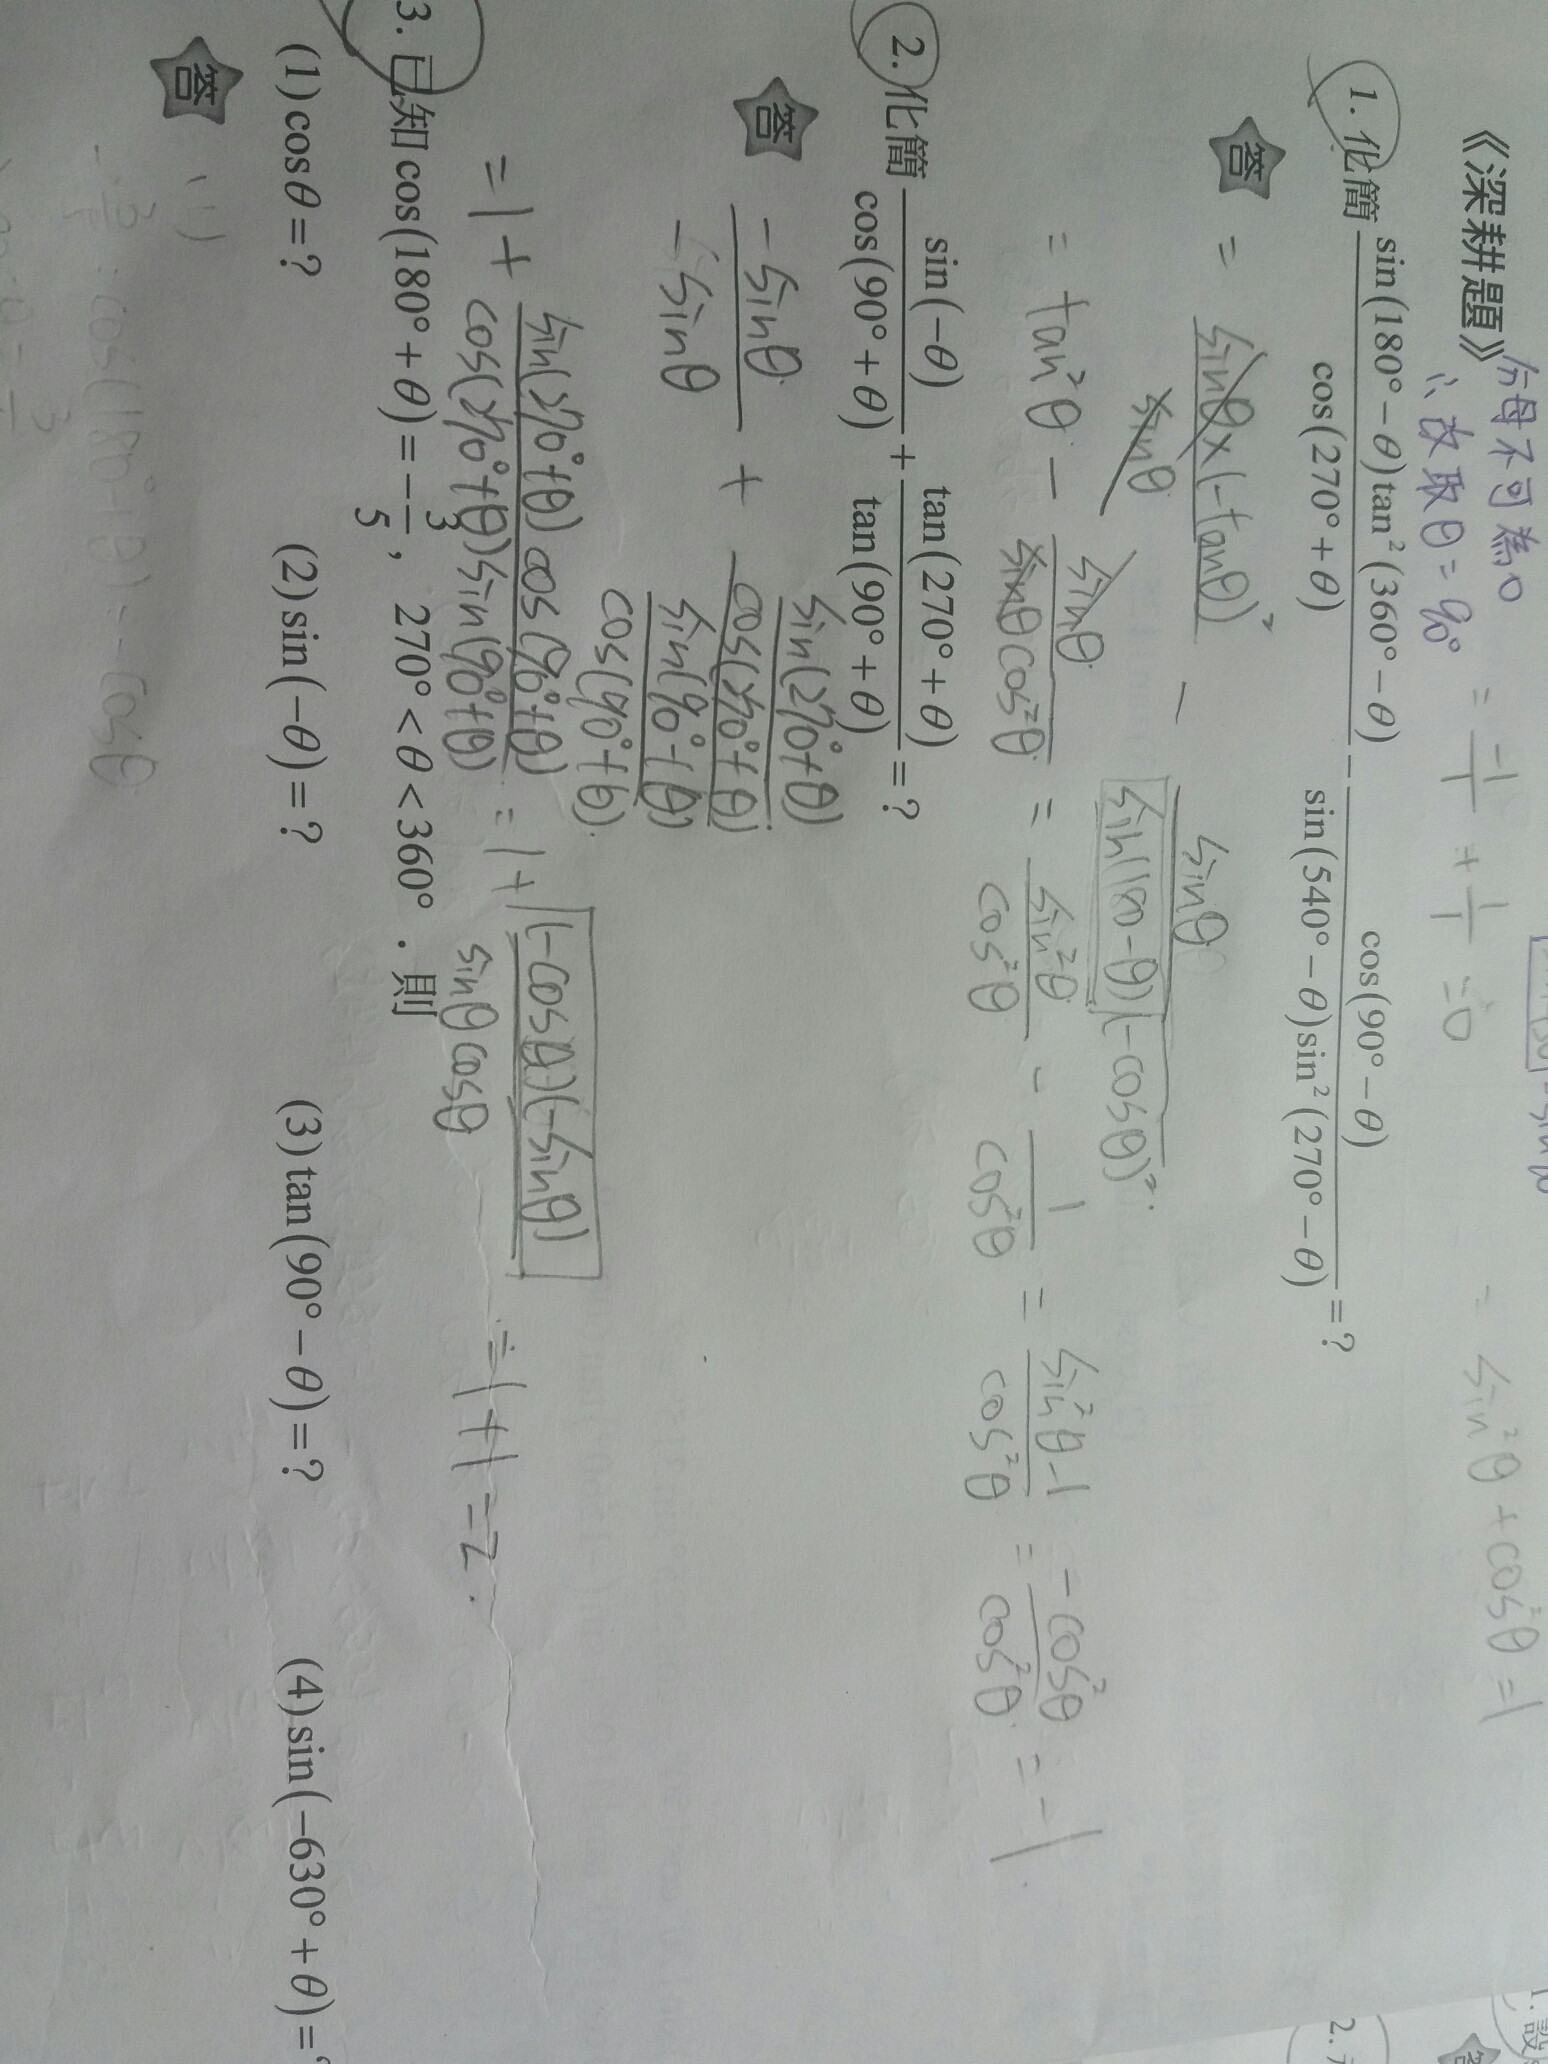 分母不可為0
∴故取θ=90°
= -1/1 + 1/1 = 0
= sin²θ + cos²θ = 1
《深耕題》
1. 化簡 sin(180°−θ)tan²(360°−θ)/cos(270°+θ) − cos(90°−θ)/(sin(540°−θ)sin²(270°−θ)) = ?
答 = sinθ×(−tanθ)²/sinθ − sinθ/(sin(180−θ)(−cosθ)²)
= tan²θ − sinθ/(sinθcos²θ) = sin²θ/cos²θ − 1/cos²θ = (sin²θ−1)/cos²θ = −cos²θ/cos²θ = −1
2. 化簡 sin(−θ)/cos(90°+θ) + tan(270°+θ)/tan(90°+θ) = ?
答 −sinθ/−sinθ + (sin(270°+θ)/cos(270°+θ))/(sin(90°+θ)/cos(90°+θ))
= 1 + sin(270°+θ)cos(90°+θ)/(cos(270°+θ)sin(90°+θ)) = 1 + (−cosθ)(−sinθ)/(sinθcosθ) = 1+1 = 2.
3. 已知 cos(180°+θ) = −3/5, 270° < θ < 360°．則
(1) cosθ = ? (2) sin(−θ) = ? (3) tan(90°−θ) = ? (4) sin(−630°+θ) =
答 (1)
cos(180°+θ) = −cosθ
1. 設
2.
答